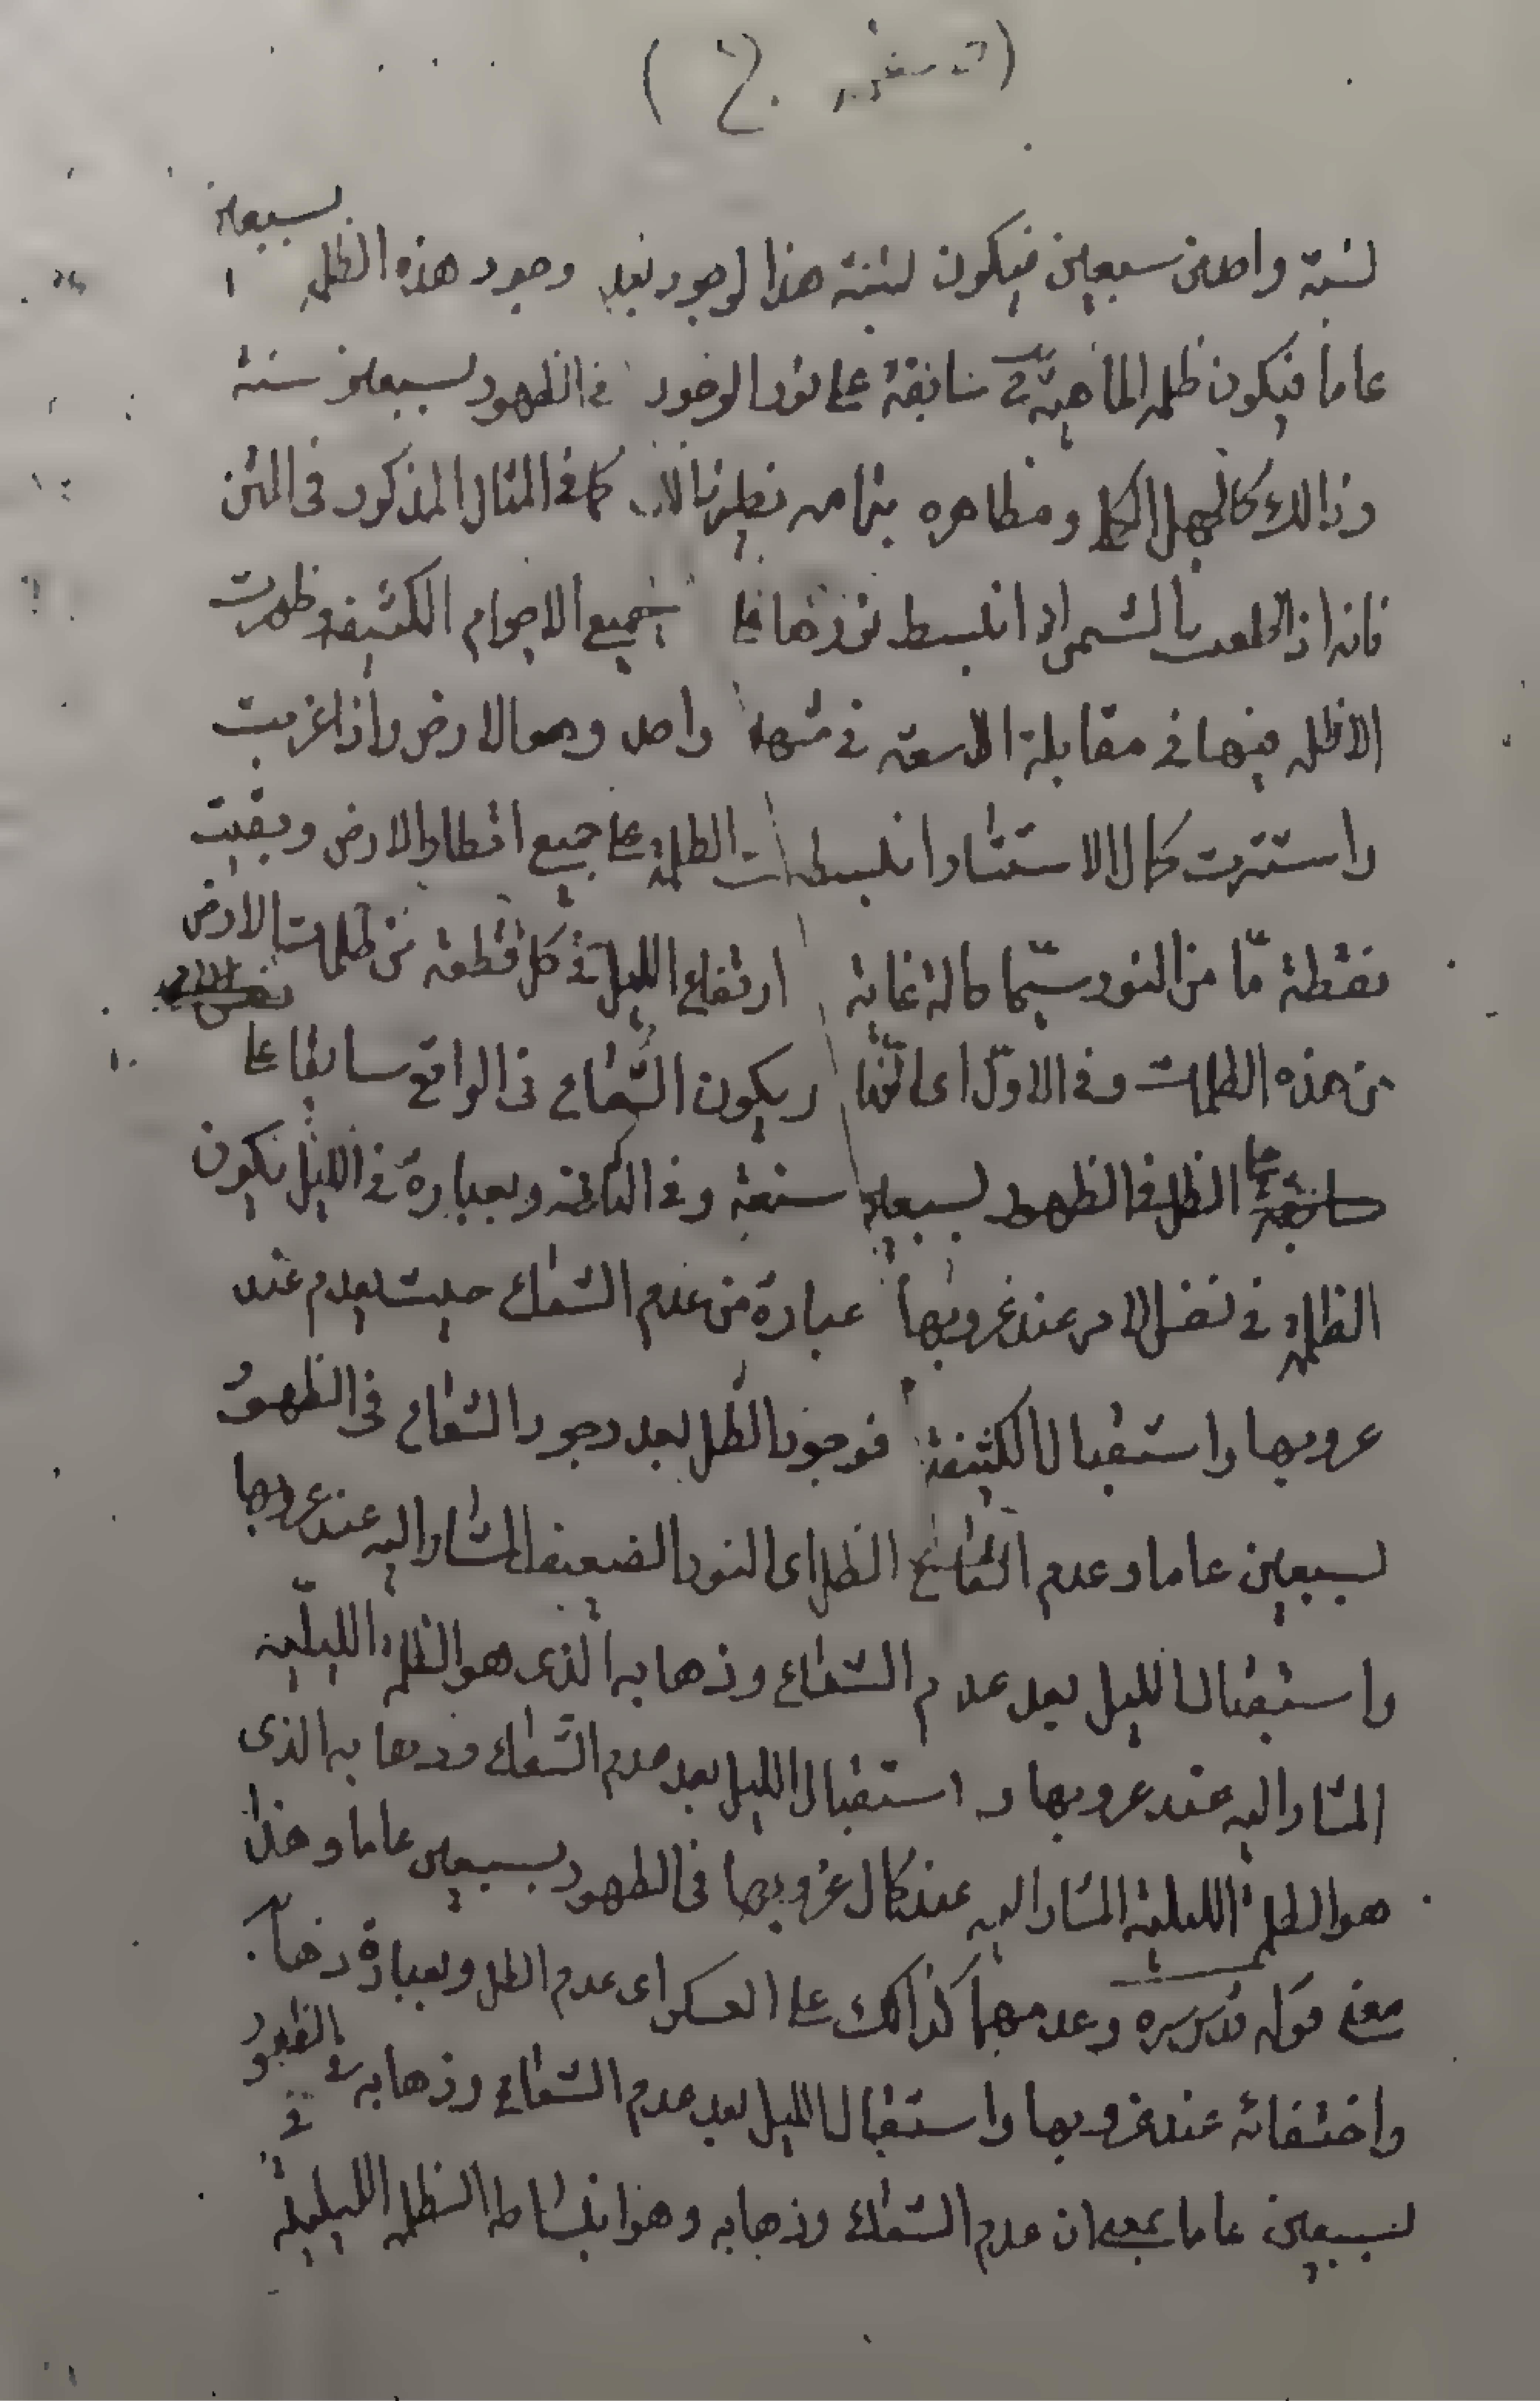 لنسبة واحد من سبعين فيكون نسبة هذا لوجود بعد وجود هذه الظل بسبعين
عاما فيكون ظلمة الماهية سابقة على نور الوجود في الظهور بسبعين سنة
وذالك كالجهل الكل ومظاهره كما في المثال المذكور في المتن
فانه اذا طلعت الشمس انبسط نورها على جميع الاجرام الكثيفة وظهرت
الاظلة فيها في مقابلة الاشعة في واحد وهو الارض واذا غربت
واستترت كمال الاستتار انبسطت الظلمة على جميع اقطار الارض وبقيت
نقطة ما من النور سيما حالة غاية ارتفاع الليل في كل قطعة من ظلمات الارض
من هذه الظلمات وفي الاول اى يكون الشعاع في الواقع سابقا على
الظل في الظهور بسبعين سنة وفي الثانية وبعبارة في الليل يكون
الظلمة في نفس الامر عند غروبها عبارة من عدم الشعاع حيث يعدم عند
غروبها واستقبال الكثيفة فوجود الظل بعد وجود الشعاع في الظهور
بسبعين عاما وعدم الظل اى النور الضعيف المشار اليه عند غروبها
واستقبال الليل بعد عدم الشعاع وذهابه الذى هو الظلمة الليلية
المشار اليه عند غروبها و استقبال الليل بعد عدم الشعاع وذهابه الذى
هو الظلمة الليلية المشار اليه عند كمال غروبها في الظهور بسبعين عاما وهذا
معنى قوله قدس سره وعدمهما كذالك على العكس اى عدم الظل وبعبارة ذهابه
واختفائه عند غروبها واستقبال الليل بعد عدم الشعاع وذهابه في الظهور
بسبعين عاما بمعنى ان عدم الشعاع وذهابه وهو انبساط الظلمة الليلية في